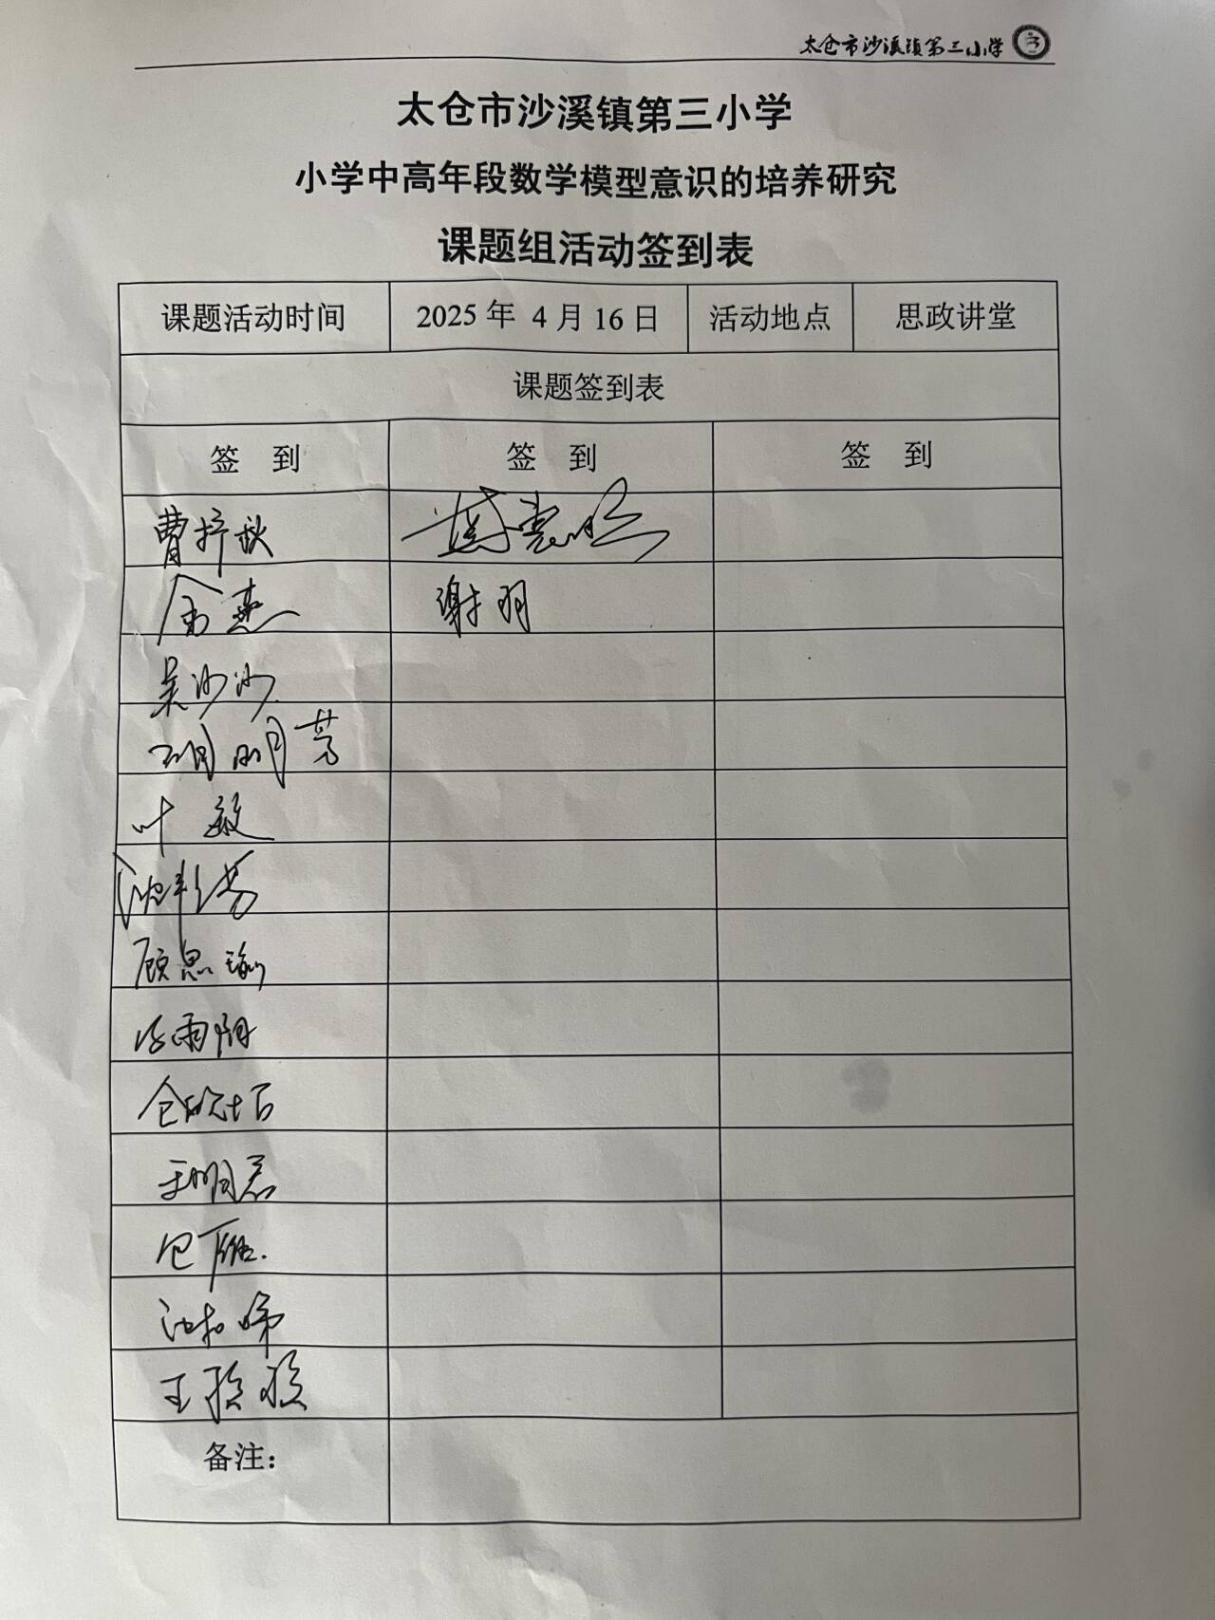 太仓市沙溪镇第三小学
太仓市沙溪镇第三小学
小学中高年段数学模型意识的培养研究
课题组活动签到表
课题活动时间 2025 年 4 月 16 日 活动地点 思政讲堂
课题签到表
签 到 签 到 签 到
曹梓秋
谢羽
吴沙沙
胡明芳
叶敏
顾思瑜
雨阳
王明君
王
备注：